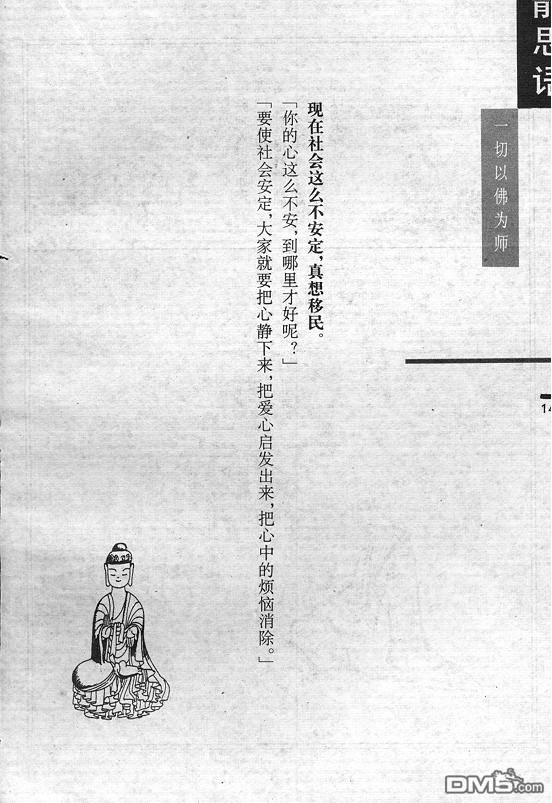 静思语
一切以佛为师
14
现在社会这么不安定，真想移民。
「你的心这么不安，到哪里才好呢？」
「要使社会安定，大家就要把心静下来，把爱心启发出来，把心中的烦恼消除。」
DM5.com